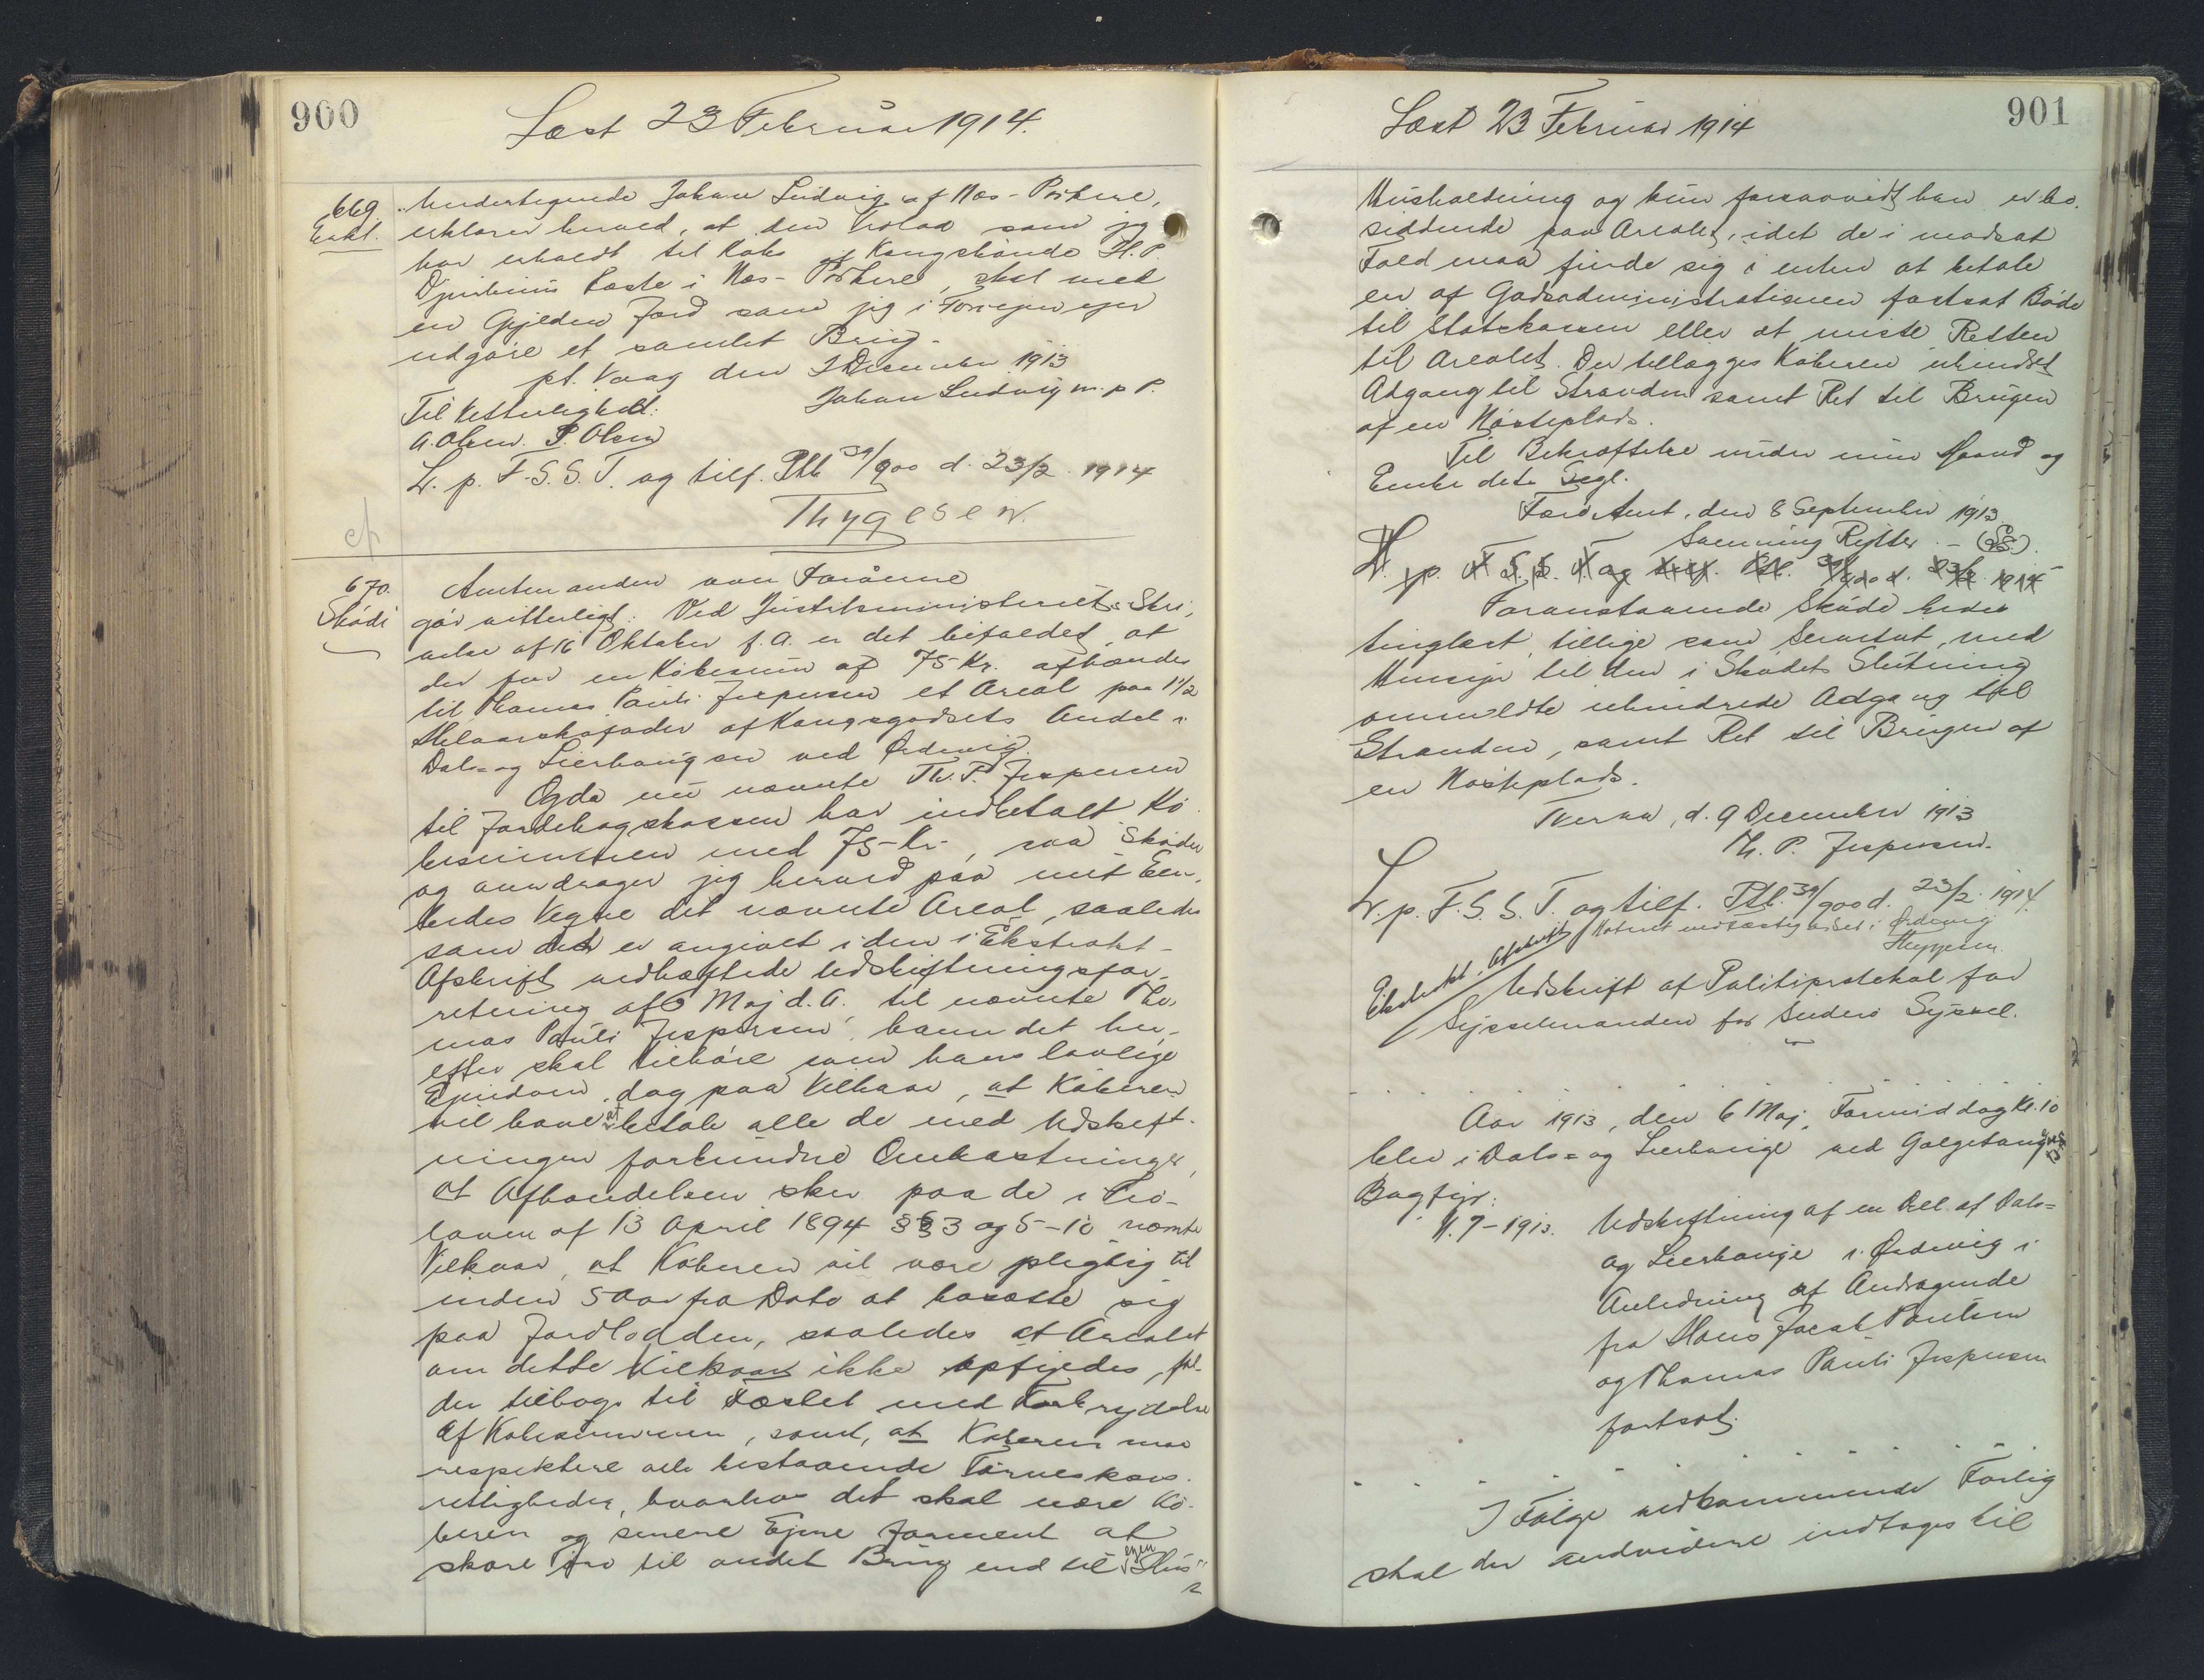 900
Læst 23 Februar 1914.
669.
Erkl.
Undertegnede Johan Ludvig af Næs-Porkere,
erklærer herved, at den Trolaa som jeg
har erholdt til Købs af Kongsbonde H. P.
Djurhuus Fæste i Næs-Porkere, skal med
en Gylden Jord som jeg i Forvejen ejer
udgøre et samlet Brug.
pt. Vaag den 2 December 1913
Johan Ludvig m. p P.
Til Vitterlighed:
A. Olsen. P. Olsen
L. p. F. S. S. T. og tilf. Ptk 39/900 d. 23/2 1914
Thygesen.
670.
Skøde
Amtmanden over Færøerne
gør vitterligt: Ved Justitsministeriets Skri-
velse af 16 Oktober f. A. er det bifaldet, at
der for en Købesum af 75 Kr. afhændes
til Thomas Pauli Jespersen et Areal paa 1 1/2
Helaarskofoder af Kongsgodsets Andel i
Dals- og Lierhaugen ved Ørdevig.
Og da nu nævnte Th. P. Jespersen
til Jordebogskassen har indbetalt Kø-
besummen med 75 Kr., saa skøder
og overdrager jeg herved paa mit Em-
bedes Vegne det nævnte Areal, saaledes
som det er angivet i den i Ekstrakt-
Afskrift vedhæftede Udskiftningsfor-
retning af 6 Maj d. A. til nævnte Tho-
mas Pauli Jespersen, hvem det her-
efter skal tilhøre som hans lovlige
Ejendom, dog paa Vilkaar, at Køberen
vil have at betale alle de med Udskift-
ningen forbundne Omkostninger,
at Afhændelsen sker paa de i
loven af 13 April 1894 §§ 3 og 5-10 nævnte
Vilkaar, at Køberen vil være pligtig til
inden 5 Aar fra Dato at bosætte sig
paa Jordlodden, saaledes at Arealet
om dette Vilkaar ikke opfyldes, fal-
der tilbage til Fæstet med Fortrydelse
af Købesummen, samt, at Køberen maa
respektere alle bestaaende Tørveskærs-
rettigheder, hvorhos det skal være Kø-
beren og senere Ejere forment at
skære Tørv til andet Brug end til egen Hus-
901
Læst 23 Februar 1914
Husholdning og kun forsaavidt han er bo-
siddende paa Arealet, idet de i modsat
Fald maa finde sig i enten at betale
en af Godsadministrationen fastsat Bøde
til Statskassen eller at miste Retten
til Arealet. Der tillægges Køberen uhindret
Adgang til Stranden samt Ret til Brugen
af en Nøsteplads.
Til Bekræftelse under min Haand og
Embedets Segl.
Færø Amt, den 8 September 1913
Svenning Rytter. - (LS.)
L. p. F. S. S. T. og tilf. Ptk. 39/900 d. 23/2 1914
Foranstaaende Skøde bedes
tinglæst, tillige som Servitut, med
Hensyn til den i Skødets Slutning
ommeldte uhindrede Adgang til
Stranden, samt Ret til Brugen af
en Nøsteplads.
Tveraa, d. 9 December 1913
Th. P. Jespersen.
L. p. F. S. S. T. og tilf. Ptk. 39/900 d. 23/2 1914.
Noteret ved Fæstegodset i Ørdevig
Thygesen
Ekstrakt. Afskrift
Udskrift af Politiprotokol for
Sysselmanden for Suderø Syssel.
Aar 1913, den 6 Maj, Formiddag Kl. 10
blev i Dals- og Lierhauge ved Galgetangen
Bagfyr:
N. 7-1913. Udskiftning af en Del af Dals-
og Lierhauge i Ørdevig i
Anledning af Andragende
fra Hans Jacob Poulsen
og Thomas Pauli Jespersen
fortsat.
I Følge vedkommende Forlig
skal der endvidere indtages til